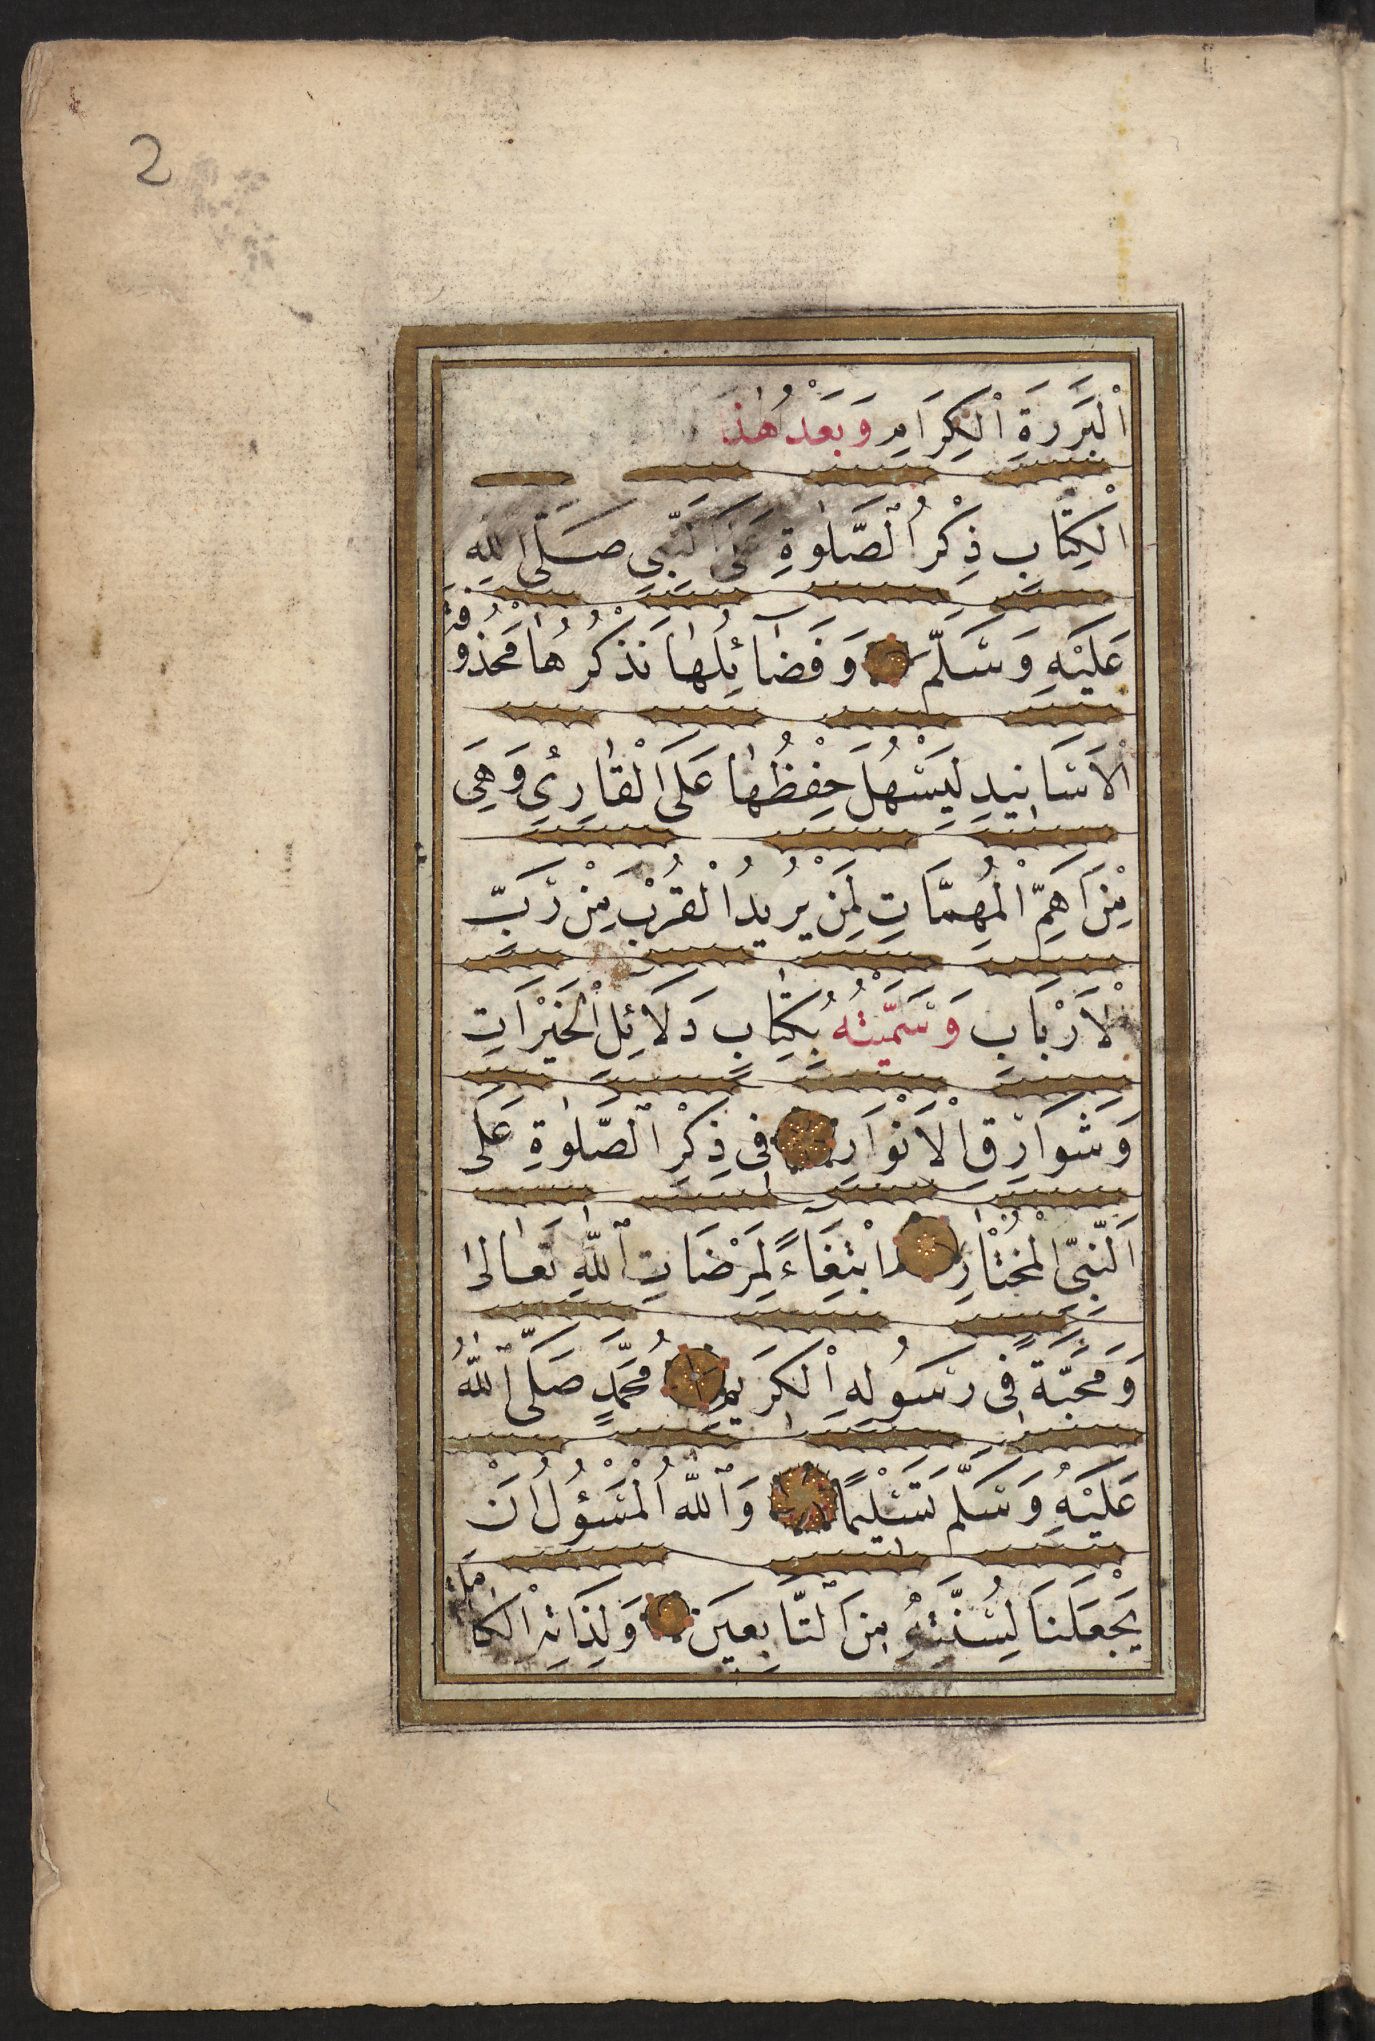 2
اْلبَرَرَةِ اْلكِرَامِ وَبَعْدُ هٰذَا
اْلكِتَابِ ذِكْرُ ٱلصَّلٰوةِ عَلَى النَّبِىِّ صَلَّى اللهُ
عَلَيْهِ وَسَلَّمَ وَفَضَآئِلُهَا نَذْكُرُهَا مَحْذُوفَةَ
اْلاَسَانِيدِ لِيَسْهُلَ حِفْظُهَا عَلَى الْقَارِئِ وَهِىَ
مِنْ اَهَمِّ الْمُهِمَّاتِ لِمَنْ يُرِيدُ الْقُرْبَ مِنْ رَبِّ
اْلاَرْبَابِ وَسَمَّيْتُهُ بِكِتَابِ دَلَائِلِ الْخَيْرَاتِ
وَشَوَارِقِ اْلاَنْوَارِ فِى ذِكْرِ ٱلصَّلٰوةِ عَلَى
اَلنَّبِىِّ الْمُخْتَارِ اِبْتِغَاءً لِمَرْضَاتِ ٱللهِ تَعَالٰى
وَمَحَبَّةً فِى رَسُولِهِ اْلكَرِيمِ مُحَمَّدٍ صَلَّى ٱللهُ
عَلَيْهِ وَسَلَّمَ تَسْلِيمًا وَٱللهُ الْمَسْؤُلُ اَنْ
يَجْعَلَنَا لِسُنَّتِهِ مِنَ ٱلتَّابِعِينَ وَلِذَاتِهِ الْكَامِلَةِ